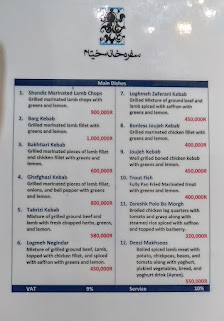 سفره خانه خیام
Main Dishes
1. Shandiz Marinated Lamb Chops
Grilled marinated lamb chops with
greens and lemon.
900,000R
2. Barg Kebab
Grilled marinated lamb fillet with
greens and lemon.
1,000,000R
3. Bakhtiari Kebab
Marinated pieces of lamb fillet
and chicken fillet with greens and
lemon.
600,000R
4. Ghafghazi Kebab
Marinated pieces of lamb fillet,
onions, and bell pepper with
greens and lemon.
800,000R
5. Tabrizi Kebab
Mixture of grilled ground beef
and lamb with fresh chopped herbs, greens,
and lemon.
580,000R
6. Logmeh Negindar
Mixture of grilled ground beef, Lamb,
topped with chicken fillet, and spiced
with saffron greens and lemon.
450,000R
7. Loghmeh Zaferani Kebab
Grilled Mixture of ground beef and
lamb spiced with saffron with
greens and lemon.
450,000R
8. Bonless Joujeh Kebab
Grilled marinated chicken fillet with
greens and lemon.
400,000R
9. Joujeh Kebab
Well grilled boned chicken kebab
with greens and lemon.
10. Trout Fish
Fully Pan Fried Marinated trout
with greens and lemon.
11. Zereshk Polo Ba Morgh
Broiled chicken leg quarters with
tomato and gravy along with
steamed rice spiced with saffron
and topped with barberry.
320,000R
12. Deezi Makhsoos
Boiled spiced lamb meat with
potato, chickpeas, beans, and
tomato along with yoghurt,
pickled vegetables, bread, and
yoghurt drink (Ayran).
350,000R
VAT 9% Service 10%